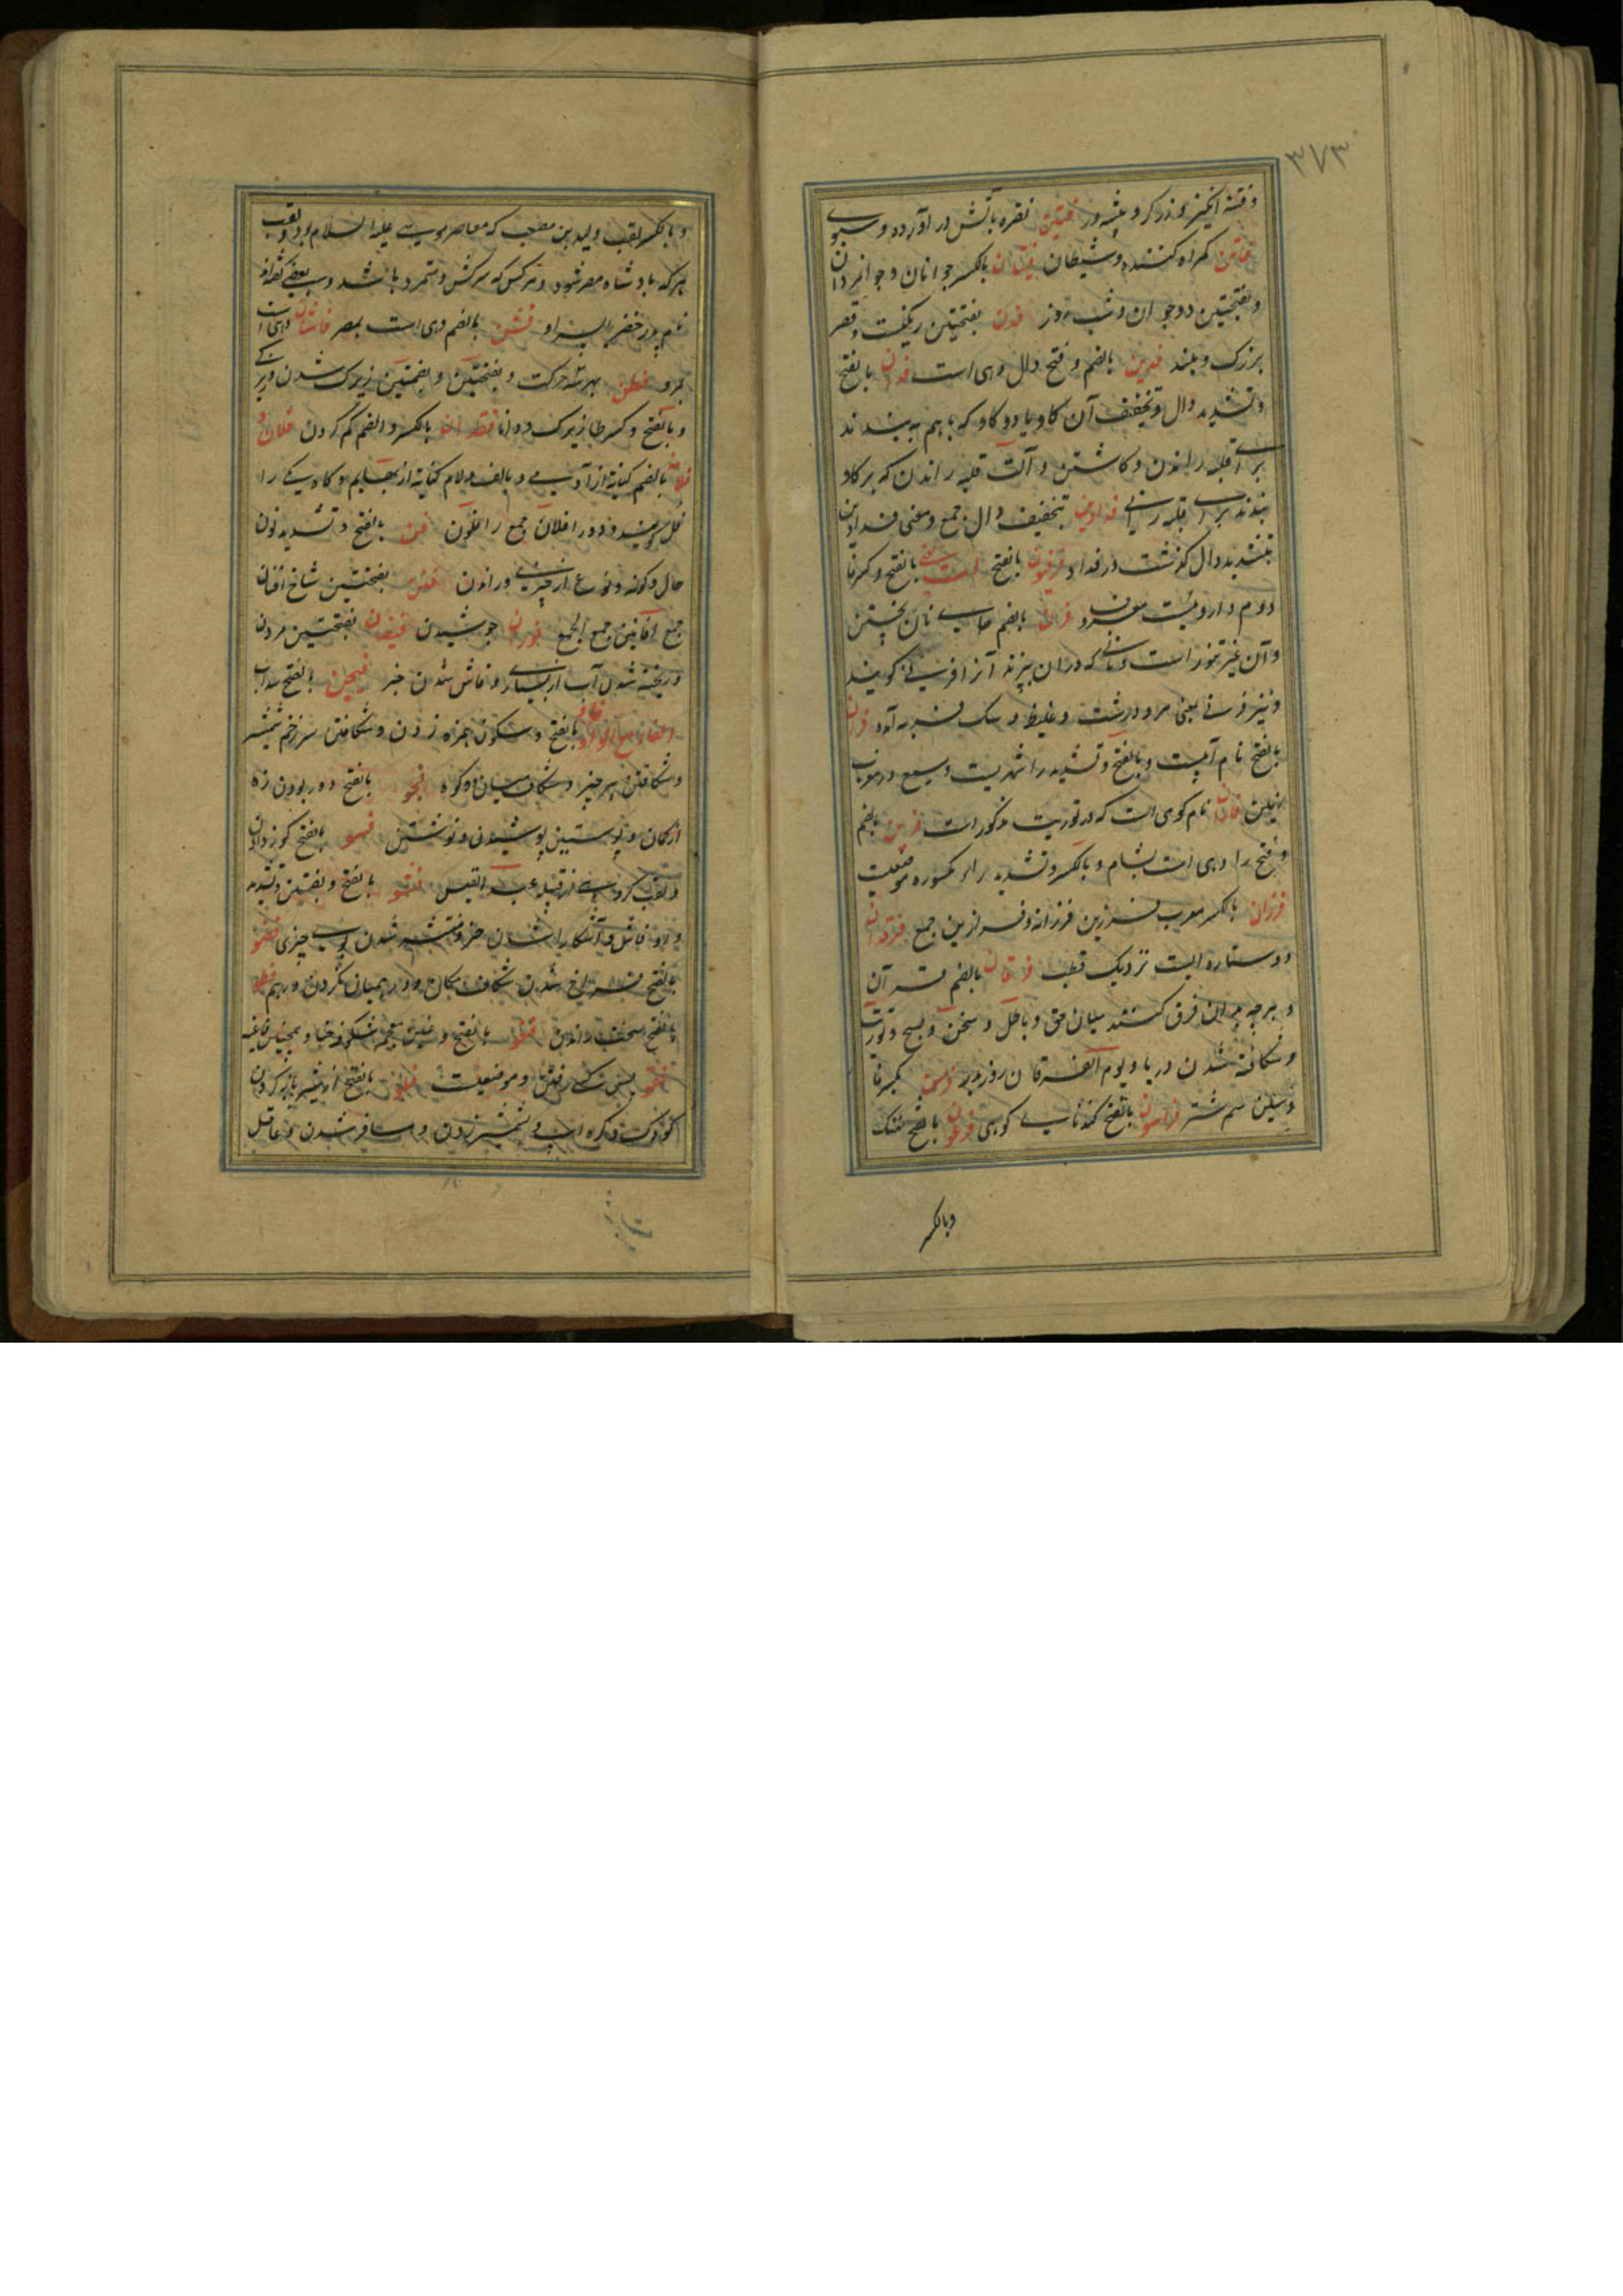 ۳۷۳
و فتنه انگیز و زرگر و پیشه ور فتین نقره بآتش در آورده و سبوی
فاتن گمراه کننده و شیطان فتیان بالکسر جوانان و جوانمردان
و بفتحتین دو جوان و شب و روز فدن بفتحتین رنگیست و قصر
بزرک و بلند فدین بالضم و فتح دال دهی است فدان بالفتح
و تشدید دال و تخفیف آن کاو یا دو کاو که باهم به بندند
برای قلبه راندن و کاشتن و آلت قلبه راندن که بر کاو
بندند برای قلبه رانی فدادین بتخفیف دال جمع و معنی فدادین
بتشدید دال گذشت در فداد فرفیون بالفتح بالفتح و کسر فا
دوم دارویست معروف فرن بالضم جای نان پختن
و آن غیر تنور است و نانی که دران پزند آنرا فرنی گویند
و نیز فرنی بمعنی مرد درشت و غلیظ و سک فربه آمده فران
بالفتح نام آبیست و بالفتح و تشدید را شهریست وسیع در مغرب
زمین فاران نام کوهی است که در توریت مذکور است فرین بالضم
و فتح را دهی است بشام و بالکسر و تشدید راء مکسوره موضعیست
فرزان بالکسر معرب فرزین فرزانه و فرازین جمع فرقدان
دو ستاره ایست نزدیک قطب فرقان بالضم قرآن
و هر چه بدان فرق کنند میان حق و باطل و سخن و صبح و توریت
و شکافته شدن دریا و یوم الفرقان روز بدر فرسن بکسر فا
و سین سم شتر فراسیون بالفتح گندنای کوهی فرعون بالفتح نهنک
وبالکسر
و بالکسر لقب ولید بن مصعب که معاصر موسی علیه السلام بود و لقب
هر که بادشاه مصر شود و هر کس که سرکش و متمرد باشد و بعضی گفته اند
نام پدر خضر یا پسر او فشن بالضم دهی است بمصر فاشان دهی است
بمرو فطن بهر سه حرکت و بفتحتین و بضمتین زیرک شدن و زیرکی
و بالفتح و کسر طا زیرک و دانا فقدان بالکسر و الضم گم کردن فلان و
فلانة بالضم کنایه از آدمی و بالف و لام کنایه از بهایم و گاه یکی را
فل گویند و دو را فلان و جمع را فلون فن بالفتح و تشدید نون
حال و گونه و نوع از چیزی و راندن فنن بفتحتین شاخ افنان
جمع افانین جمع الجمع فوران جوشیدن فیضان بفتحتین مردن
و ریخته شدن آب از بسیاری و فاش شدن خبر فیجن بالفتح سداب
الفاء مع الواو فاو بالفتح و سکون همزه زدن و شکافتن سر زخم شمشیر
و شکافتن هر چیز و شکاف میان دو کوه فجو بالفتح دور بودن زه
از کمان و پوستین پوشیدن و نوشتن فسو بالفتح گوز دادن
و لقب گروهی از قبیله عبد القیس فشو بالفتح و بضمتین و تشدید
واو فاش و آشکارا شدن خبر و منتشر شدن بوی چیزی فضو
بالفتح فراخ شدن شکاف مکان و در همیان نکردن درهم فطو
بالفتح سخت راندن فغو بالفتح و غین معجمه شکوفه حنا و همچنین فاغیه
فقو پس کسی رفتن و موضعیست فلو بالفتح از شیر باز کردن
کودک و کره اسپ و شمشیر زدن و مسافر شدن و عاقل